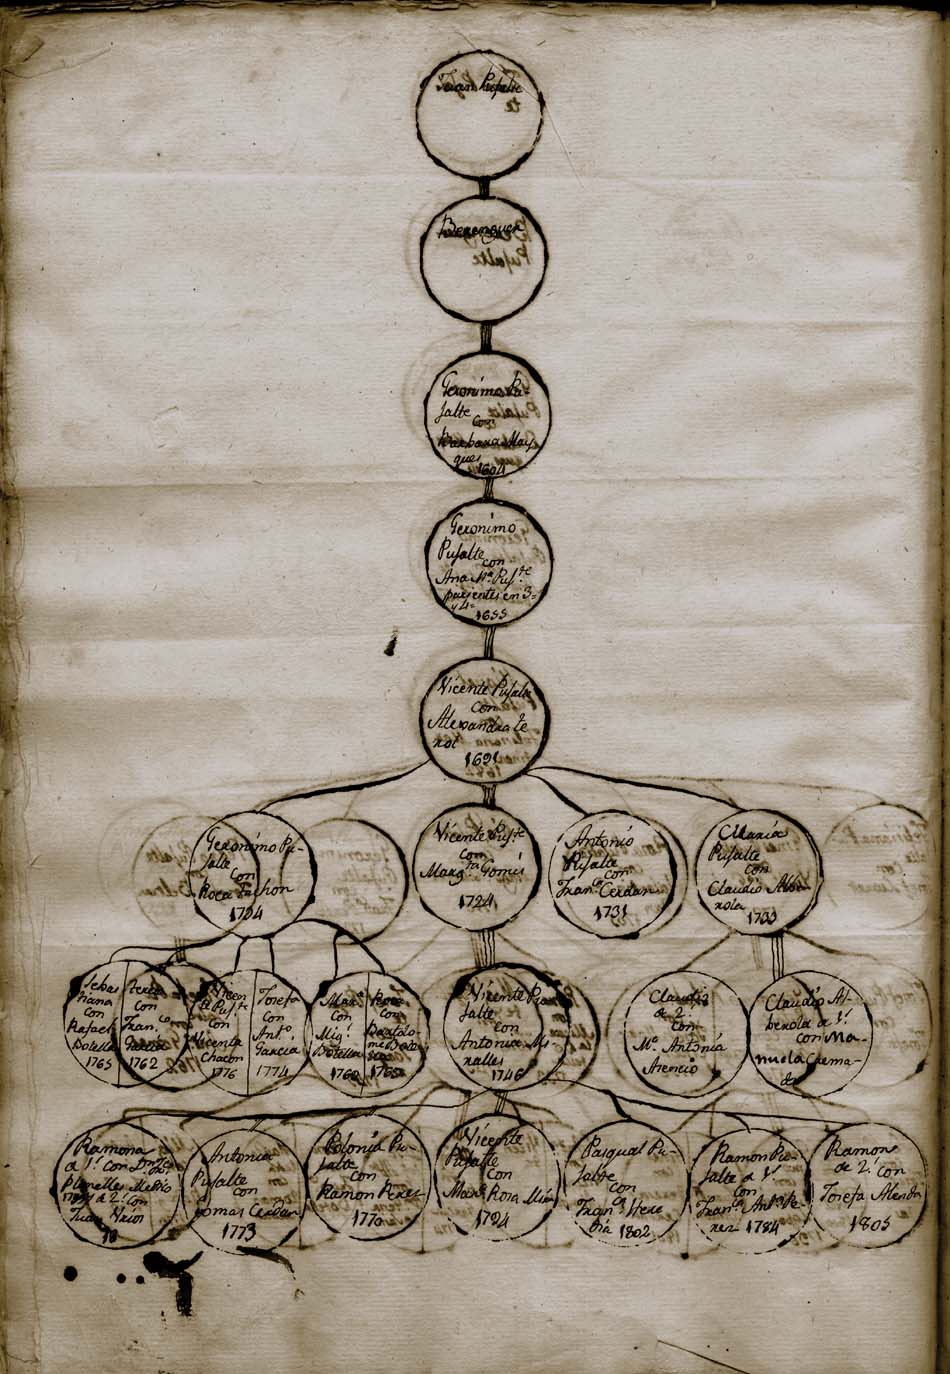 Juan Pujalte
Berenguer
Pujalte
Geronimo Pu-
jalte
Con
Barbara Mar
ques
1604
Geronimo
Pujalte
con
Ana Mª Pujte
parientes en 3º
y 4º
1655
Vicente Pujalte
con
Alexandra te
rol
1691
Geronimo Pu-
jalte
con
Roca Fa chon
1724
Vicente Pujte
con
Margta Gomis
1724
Antonio
Pujalte
con
Franca Cerdan
1731
Maria
Pujalte
con
Claudio Albe
rola
1733
Sebas
tiana
con
Rafael
Botella
1765
Teresa
con
Fran.co
Garcia
1762
Vicen
te Pujte
con
Vicenta
Chacon
1776
Josefa
con
Anto
Garcia
1774
Marª
con
Migl
Botella
1760
Rosa
con
Bartolo
me
1765
Vicente Pu
jalte
con
Antonia Mi
ralles
1746
Claudio
de 2º
con
Mª Antonia
Asencio
Claudio Al
berola de 1º
con Ma-
nuela Crema-
des
Ramona
de 1º con
Planelles
de 2º con
Juan
18
Antonia
Pujalte
con
Tomas Cerdan
1773
Polonia Pu-
jalte
con
Ramon Perez
1770
Vicente
Pujalte
con
Marª Rosa Mira
1794
Pasqual Pu-
jalte
con
Franca
1802
Ramon Pu-
jalte de 1º
con
Franca Anta Pe-
rez 1784
Ramon
de 2º con
Josefa
1805